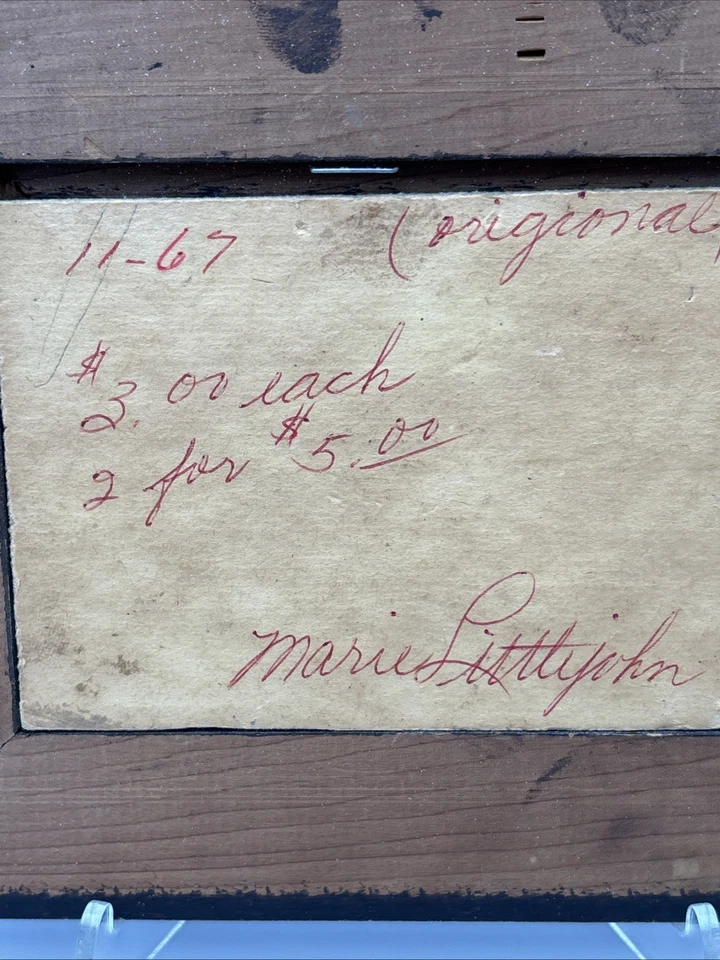 11-67 (origional)
$3.00 each
2 for $5.00
Marie Littlejohn